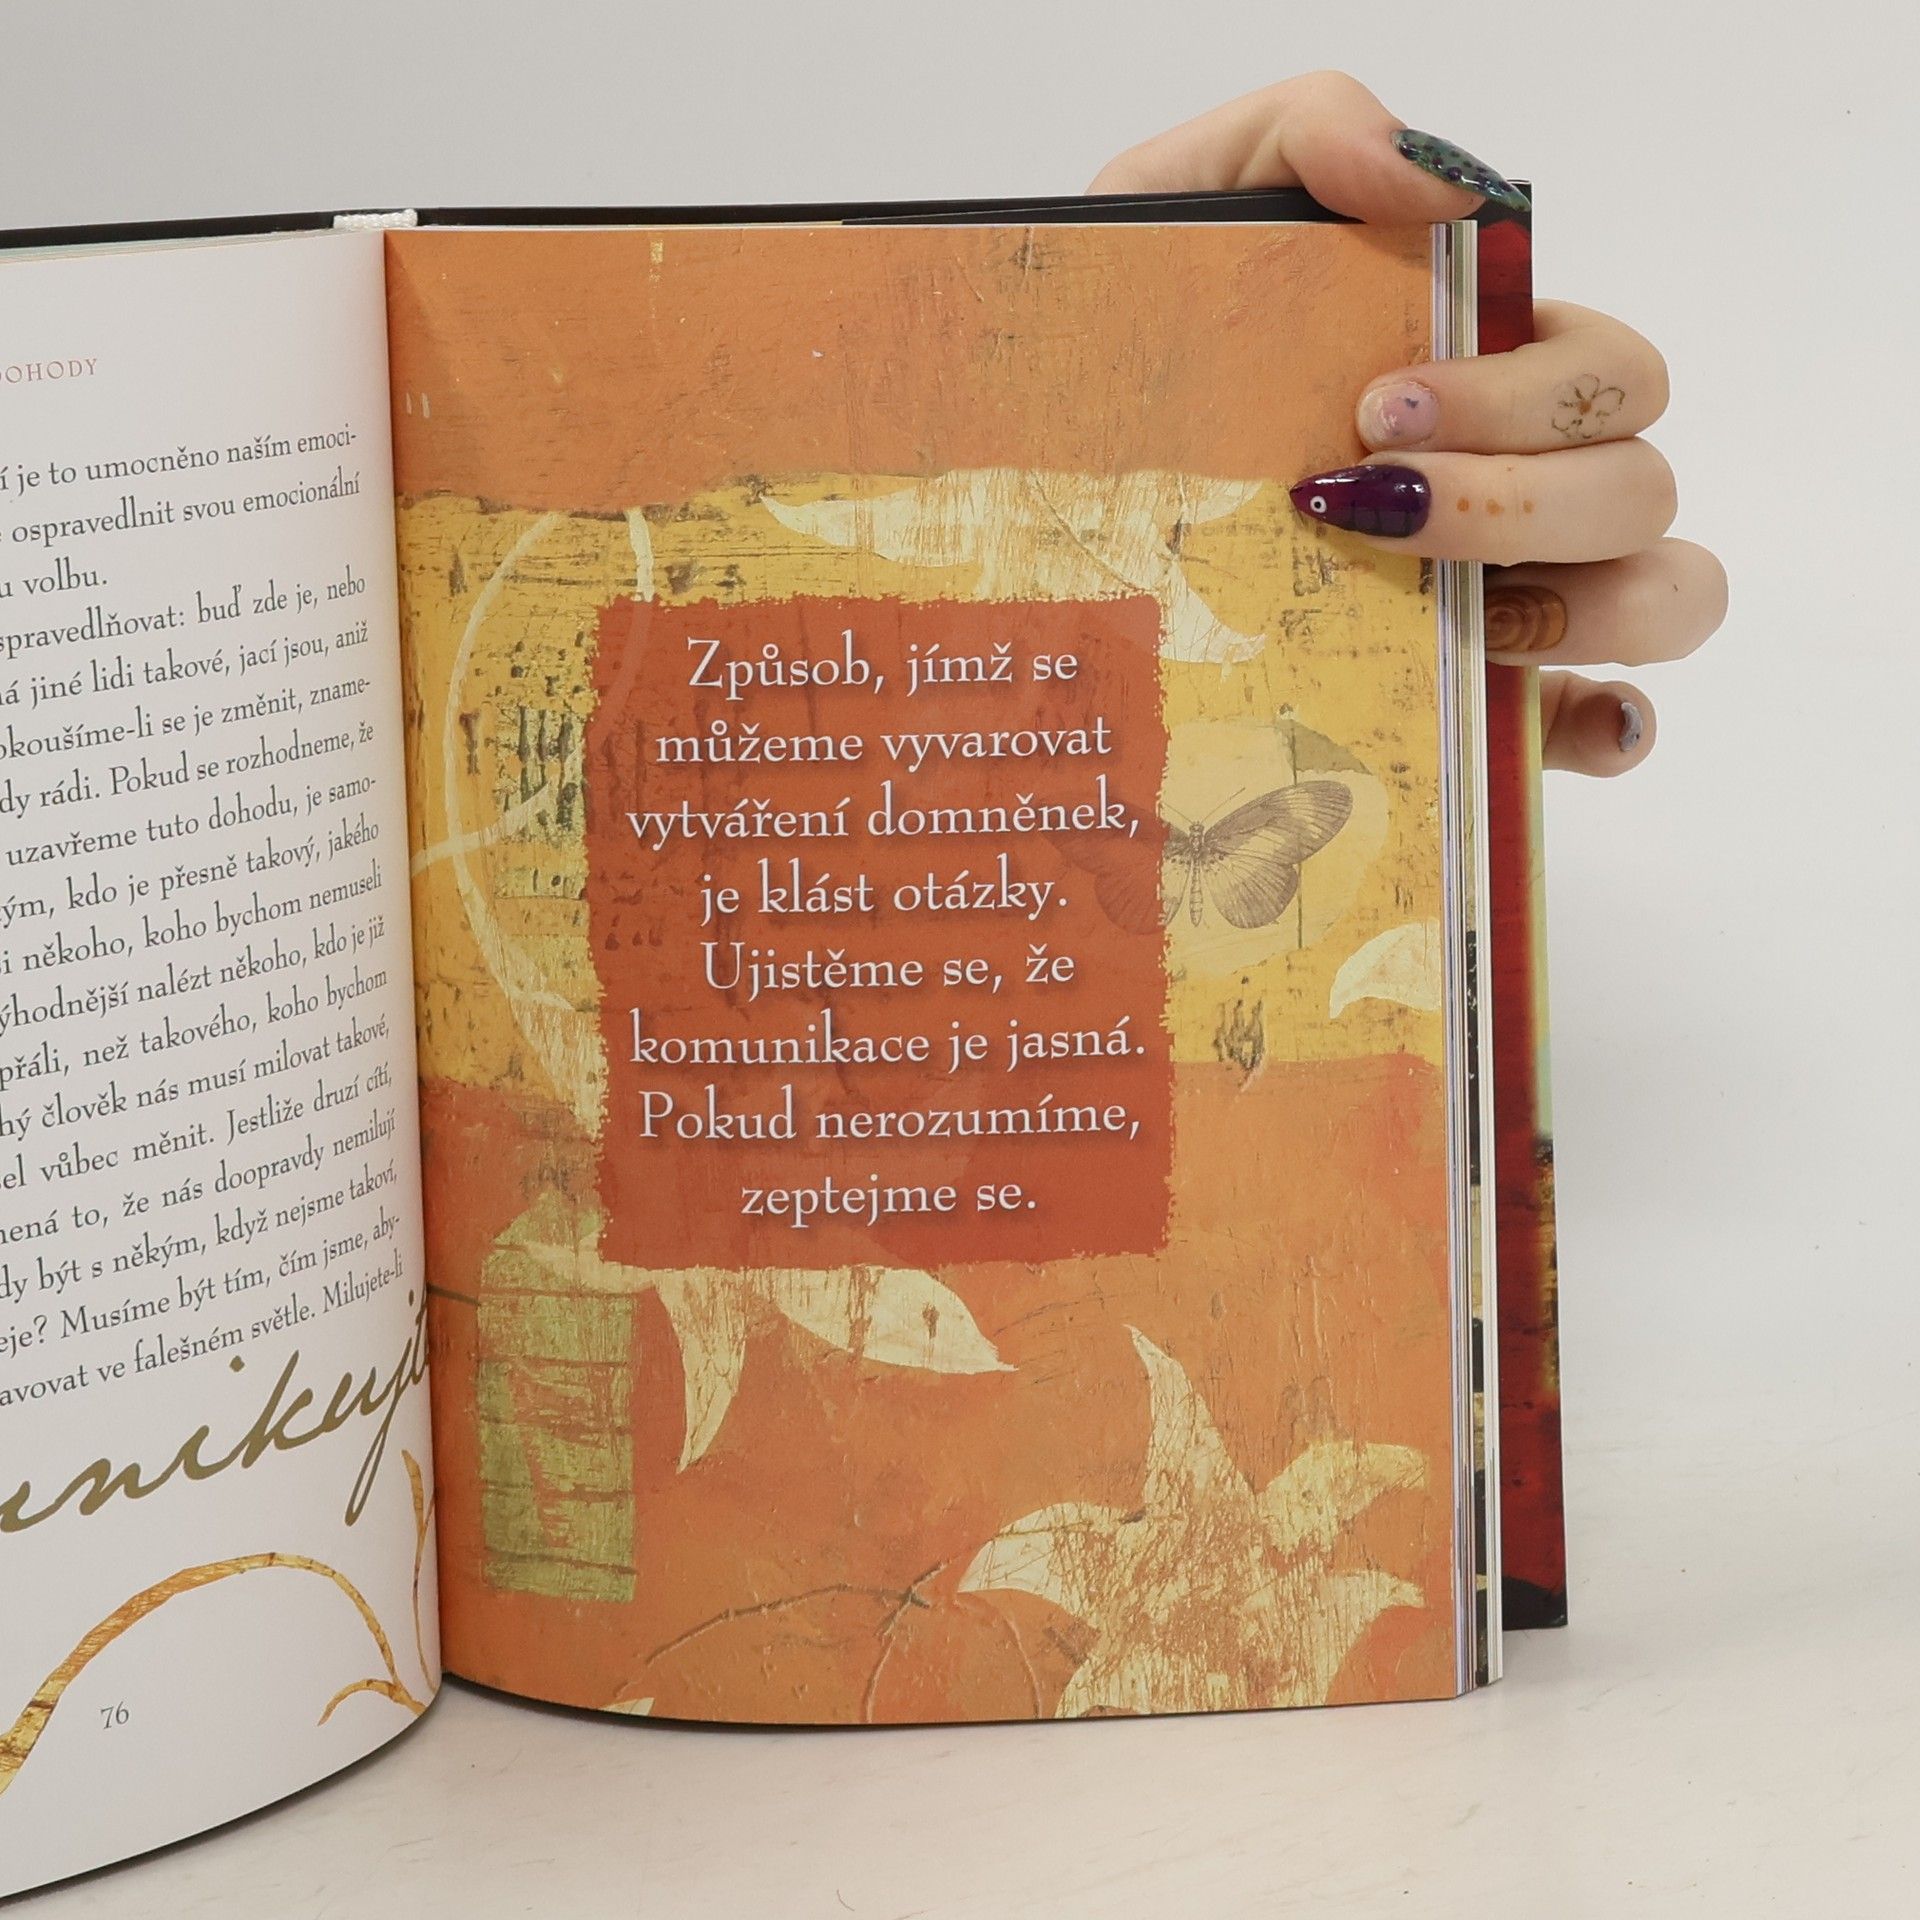 je to umocněno naším emoci-
ospravedlnit svou emocionální
volbu.
buď zde je, nebo
jiné lidi takové, jací jsou, aniž
se je změnit, zname-
rádi. Pokud se rozhodneme, že
uzavřeme tuto dohodu, je samo-
kdo je přesně takový, jakého
někoho, koho bychom nemuseli
nalézt někoho, kdo je již
přáli, než takového, koho bychom
člověk nás musí milovat takové,
vůbec měnit. Jestliže druzí cítí,
to, že nás doopravdy nemilují
být s někým, když nejsme takoví,
Musíme být tím, čím jsme, aby-
ve falešném světle. Milujete-li
76
Způsob, jímž se
můžeme vyvarovat
vytváření domněnek,
je klást otázky.
Ujistěme se, že
komunikace je jasná.
Pokud nerozumíme,
zeptejme se.